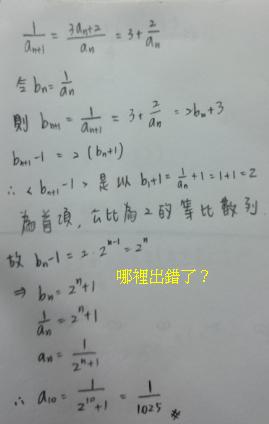 1/a_{n+1} = (3a_n+2)/a_n = 3+2/a_n
令 b_n = 1/a_n
則 b_{n+1} = 1/a_{n+1} = 3+2/a_n = 2b_n+3
b_{n+1}-1 = 2(b_n+1)
∴ <b_{n+1}-1> 是以 b_1+1 = 1/a_n+1 = 1+1 = 2
為首項，公比為2的等比數列.
故 b_n-1 = 2·2^{n-1} = 2^n
⇒ b_n = 2^n+1
哪裡出錯了？
1/a_n = 2^n+1
a_n = 1/(2^n+1)
∴ a_{10} = 1/(2^{10}+1) = 1/1025 ※